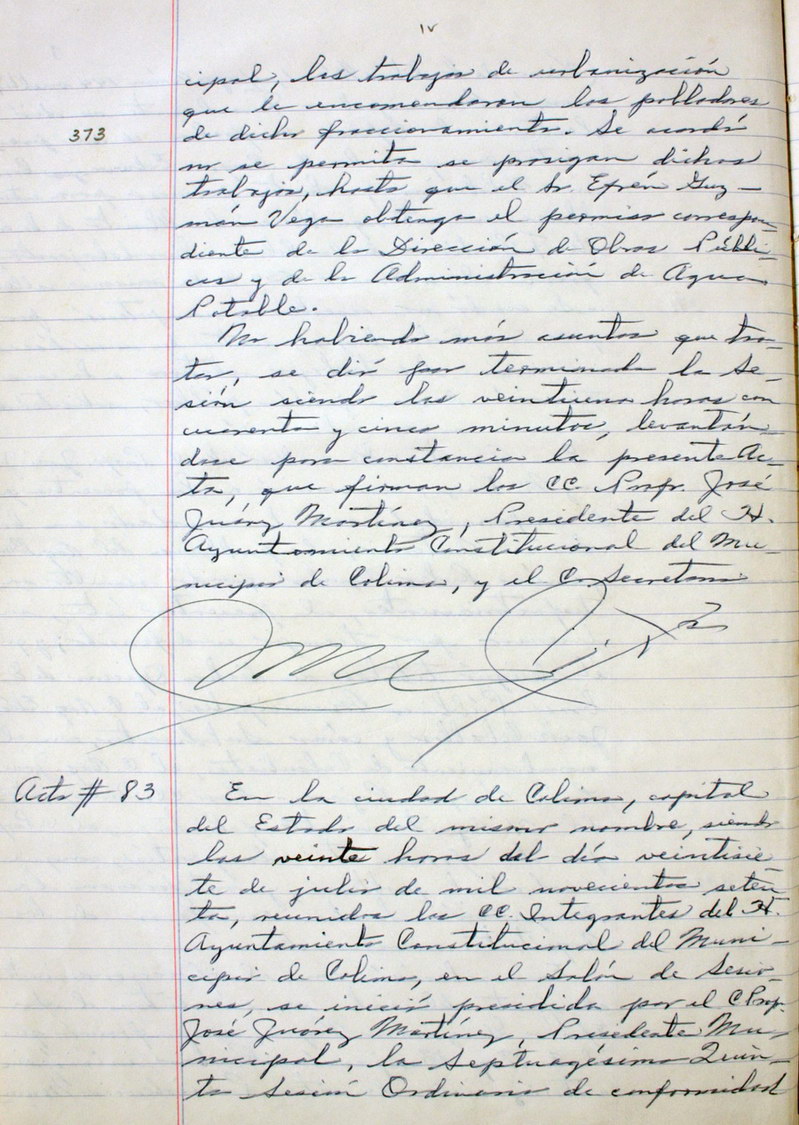 cipal, los trabajos de urbanización
que le encomendaron los pobladores
373
de dicho fraccionamiento. Se acordó
no se permita se prosigan dichos
trabajos, hasta que el Sr. Efrén Guz-
mán Vega obtenga el permiso correspon-
diente de la Dirección de Obras Públi-
cas y de la Administración de Agua
Potable.
No habiendo más asuntos que tra-
tar, se dió por terminada la Se-
sión siendo las veintiuna horas con
cuarenta y cinco minutos, levantán
dose para constancia la presente Ac-
ta, que firman los CC. Profr. José
Juárez Martínez, Presidente del H.
Ayuntamiento Constitucional del Mu-
nicipio de Colima, y el C. Secretario
Acta # 83
En la ciudad de Colima, capital
del Estado del mismo nombre, siendo
las veinte horas del día veintisie
te de julio de mil novecientos seten
ta, reunidos los CC. Integrantes del H.
Ayuntamiento Constitucional del Muni-
cipio de Colima, en el Salón de Sesio-
nes, se inició presidida por el C. Prof.
José Juárez Martínez, Presidente Mu-
nicipal, la Septuagésima Quin-
ta Sesión Ordinaria de conformidad